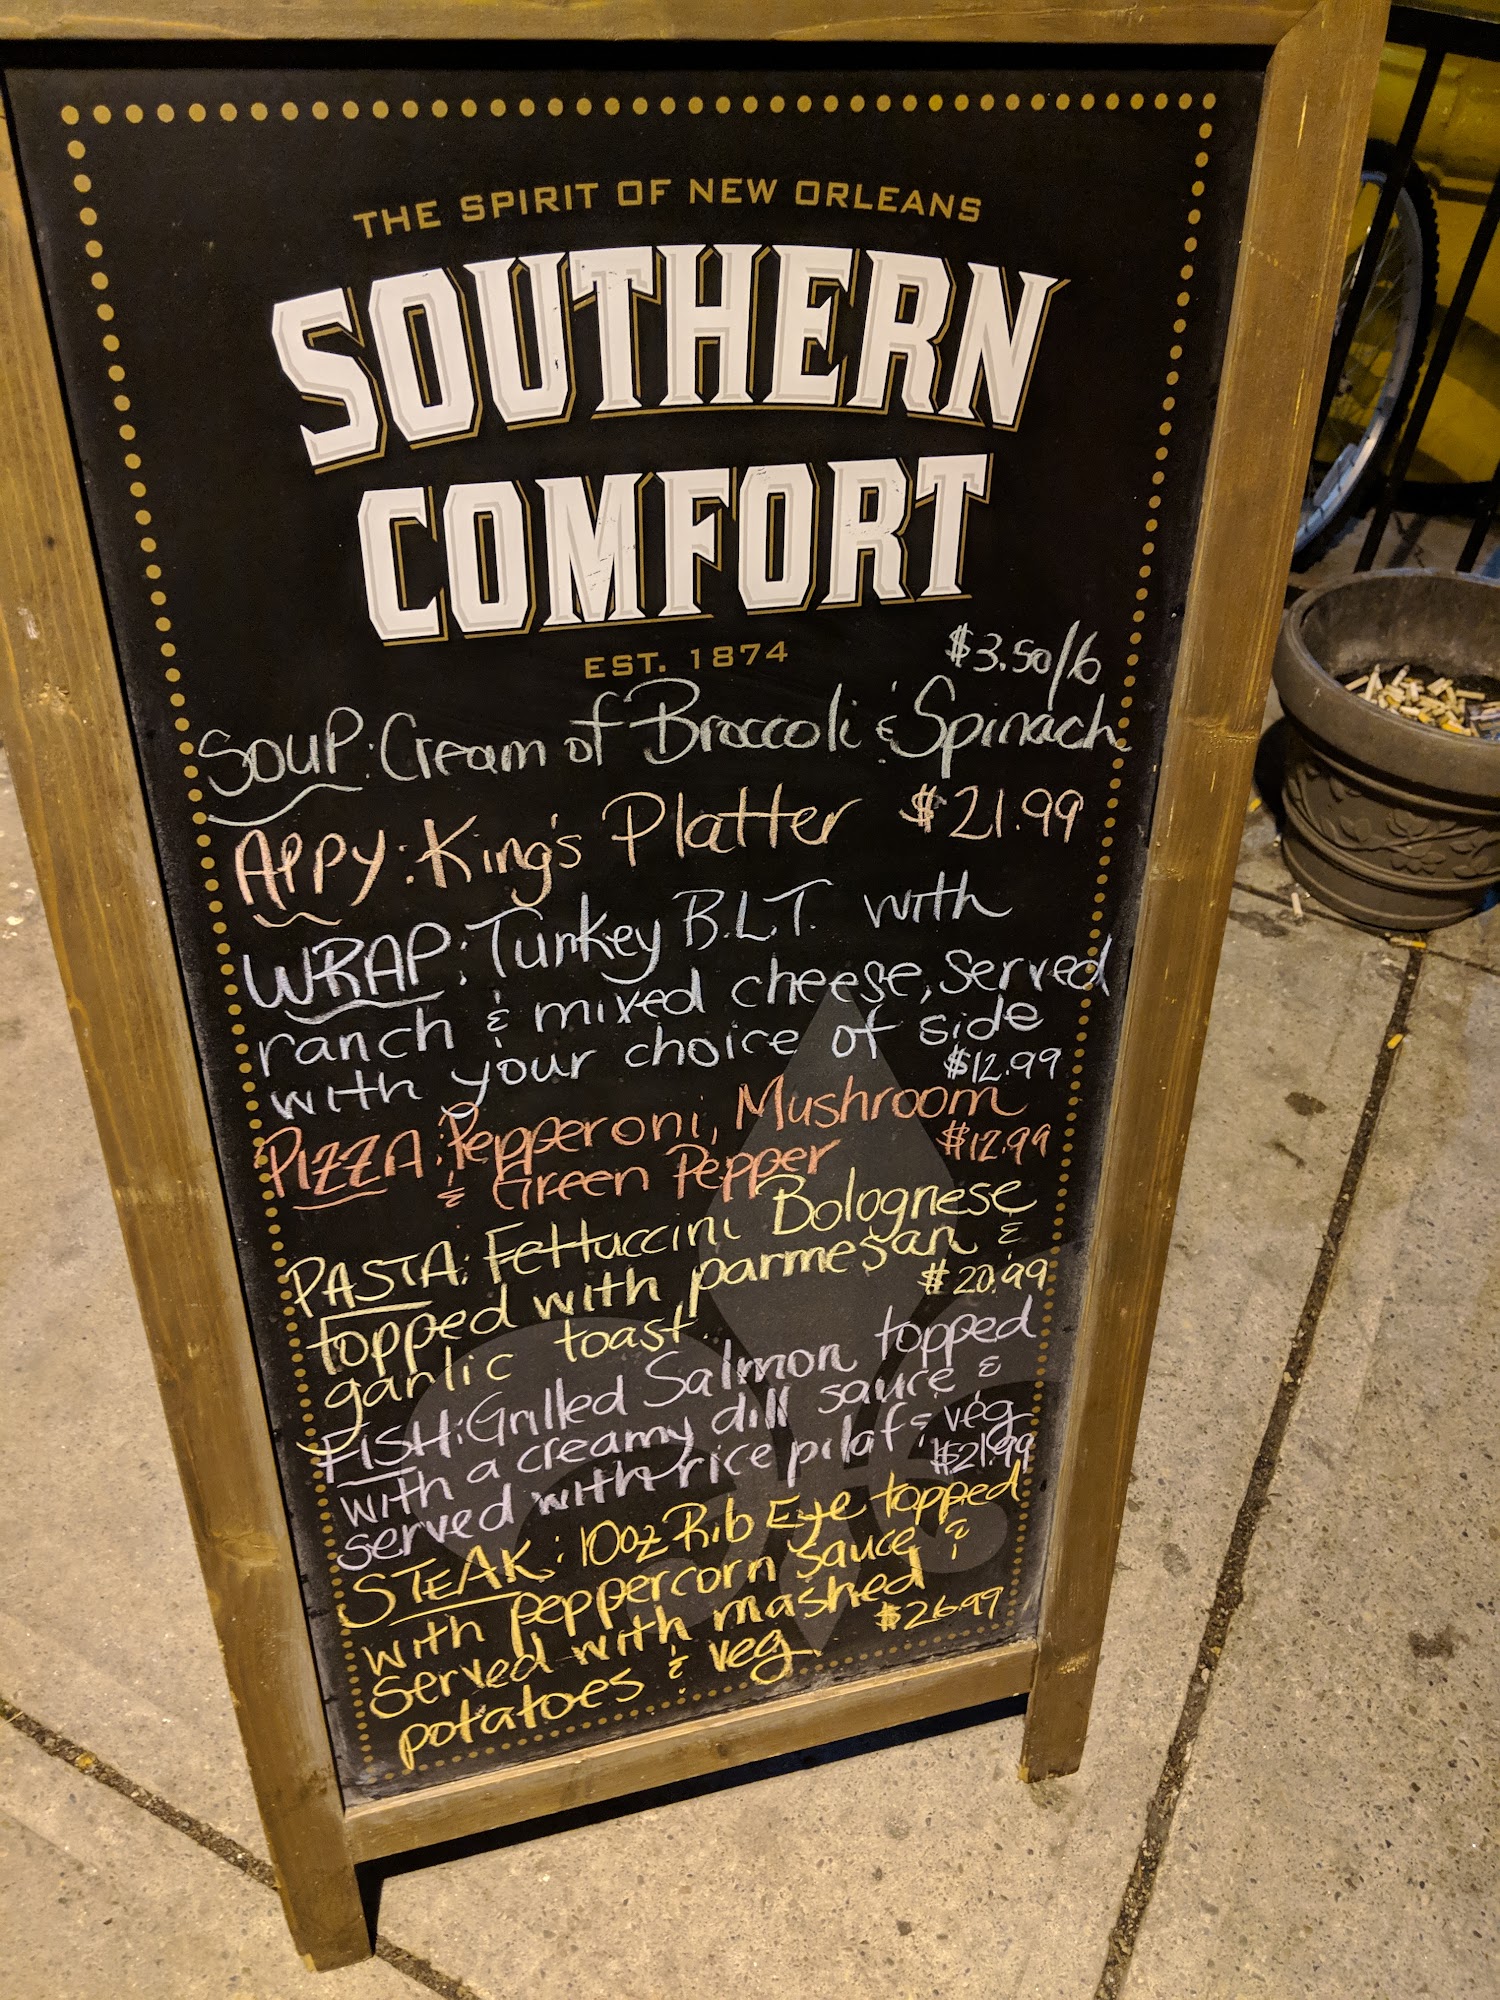 THE SPIRIT OF NEW ORLEANS
SOUTHERN
COMFORT
EST. 1874
$3.50/6
SOUP: Cream of Broccoli & Spinach
APPY: King's Platter $21.99
WRAP: Turkey B.L.T. with
ranch & mixed cheese, served
with your choice of side
$12.99
PIZZA: Pepperoni, Mushroom
& Green Pepper $12.99
PASTA: Fettuccini Bolognese
topped with parmesan &
garlic toast $20.99
FISH: Grilled Salmon topped
with a creamy dill sauce &
served with rice pilaf & veg
$21.99
STEAK: 10oz Rib Eye topped
with peppercorn sauce &
served with mashed
potatoes & veg. $26.99